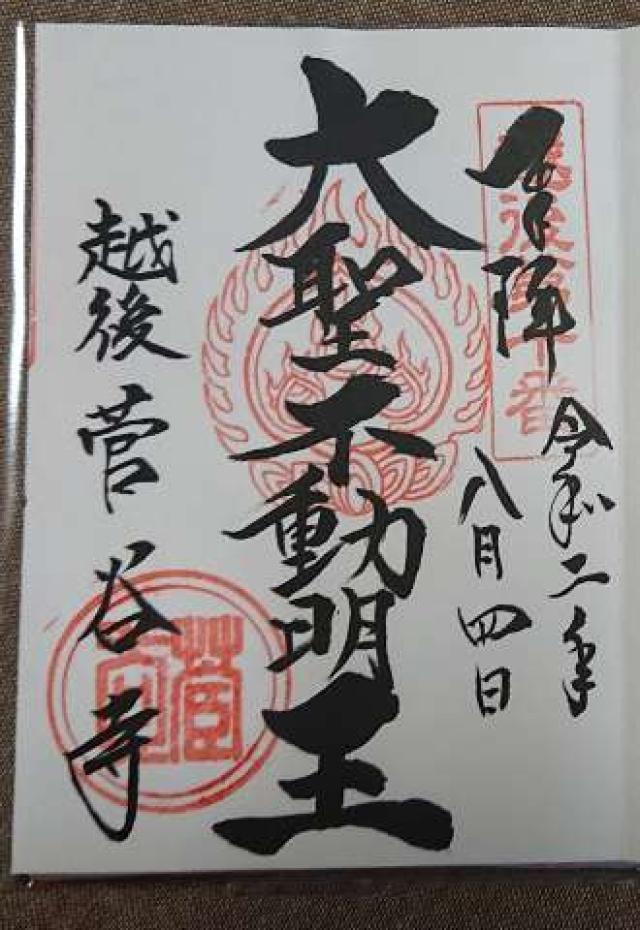 奉拝
令和二年
八月四日
大聖不動明王
越後菅谷寺